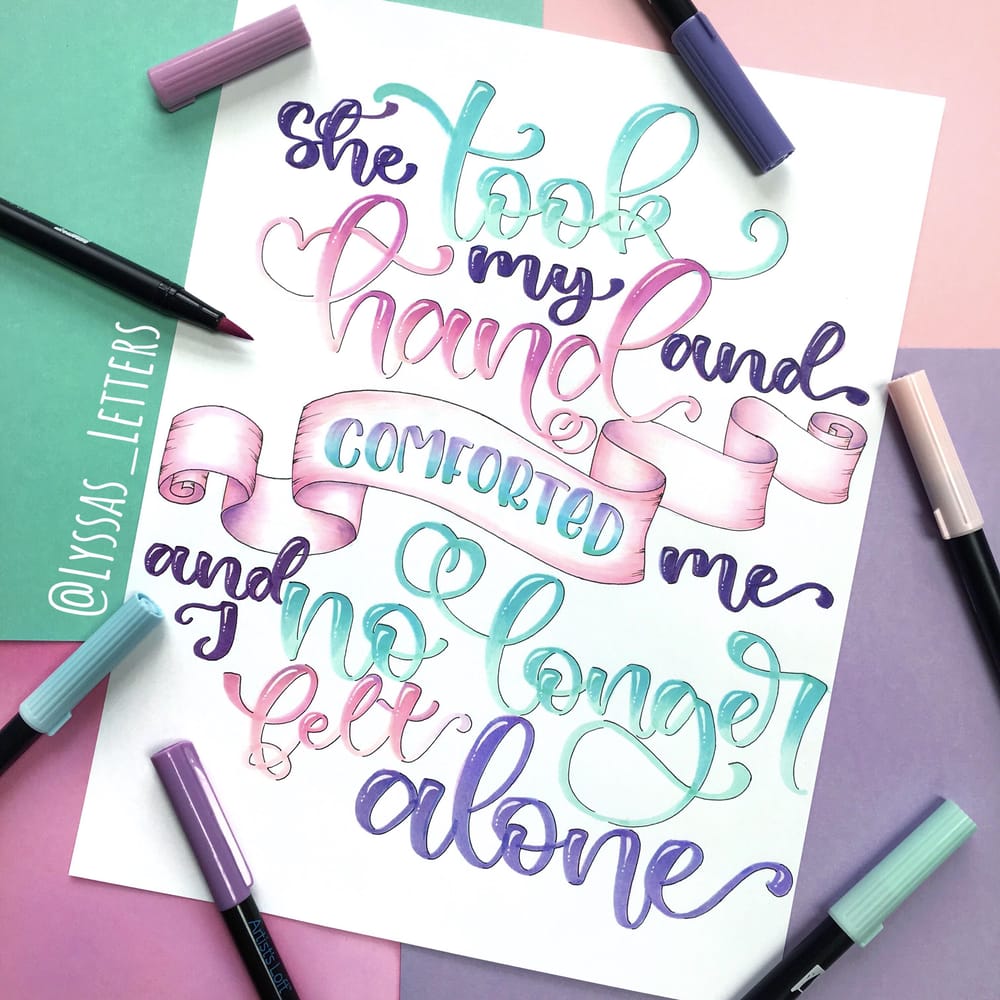 she took
my
hand and
COMFORTED
me
and
I no longer
felt
alone
@LYSSAS_LETTERS
Artist's Loft